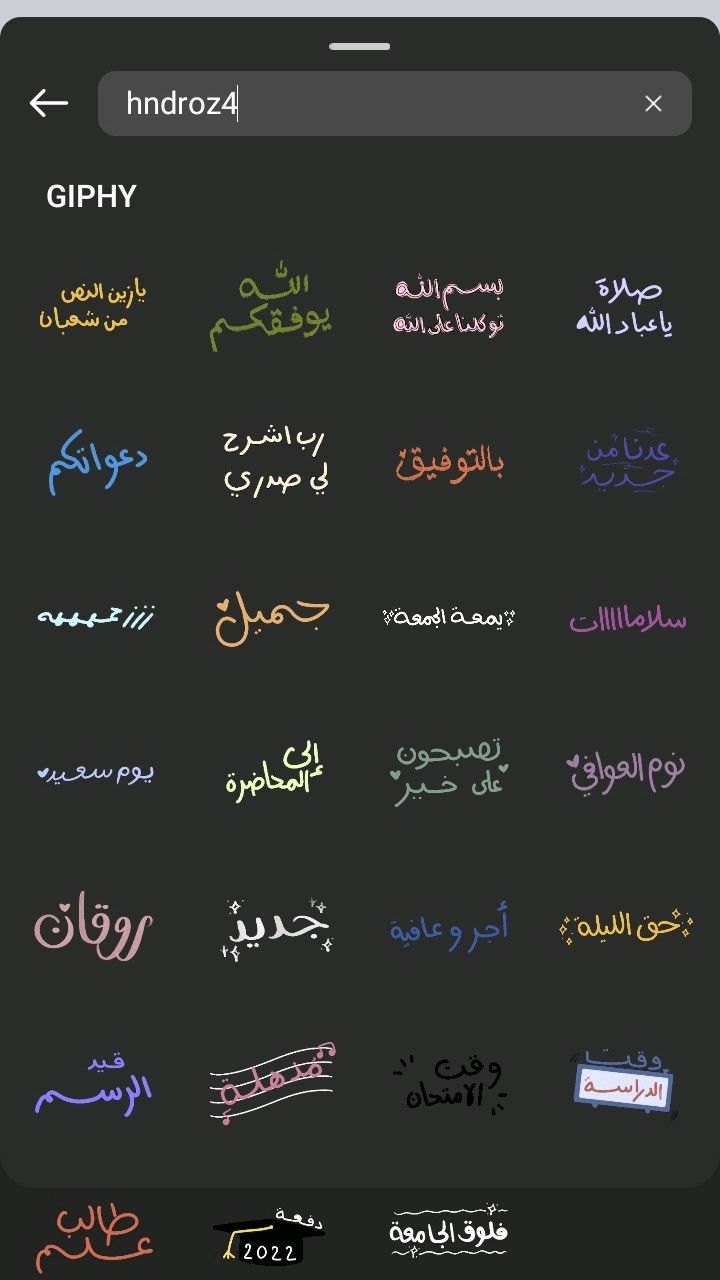 hndroz4
GIPHY
يازين النص
من شعبان
الله
يوفقكم
بسم الله
توكلنا على الله
صلاة
ياعباد الله
دعواتكم
رب اشرح
لي صدري
بالتوفيق
عدنا من
جديد
جميل
يمعة الجمعة
سلامااااات
يوم سعيد
إلى
المحاضرة
تصبحون
على خير
نوم العوافي
روقان
جديد
أجر و عافية
حق الليلة
قيد
الرسم
مذهلة
وقت
الامتحان
وقت
الدراسة
طالب
علم
دفعة
2022
فلوق الجامعة